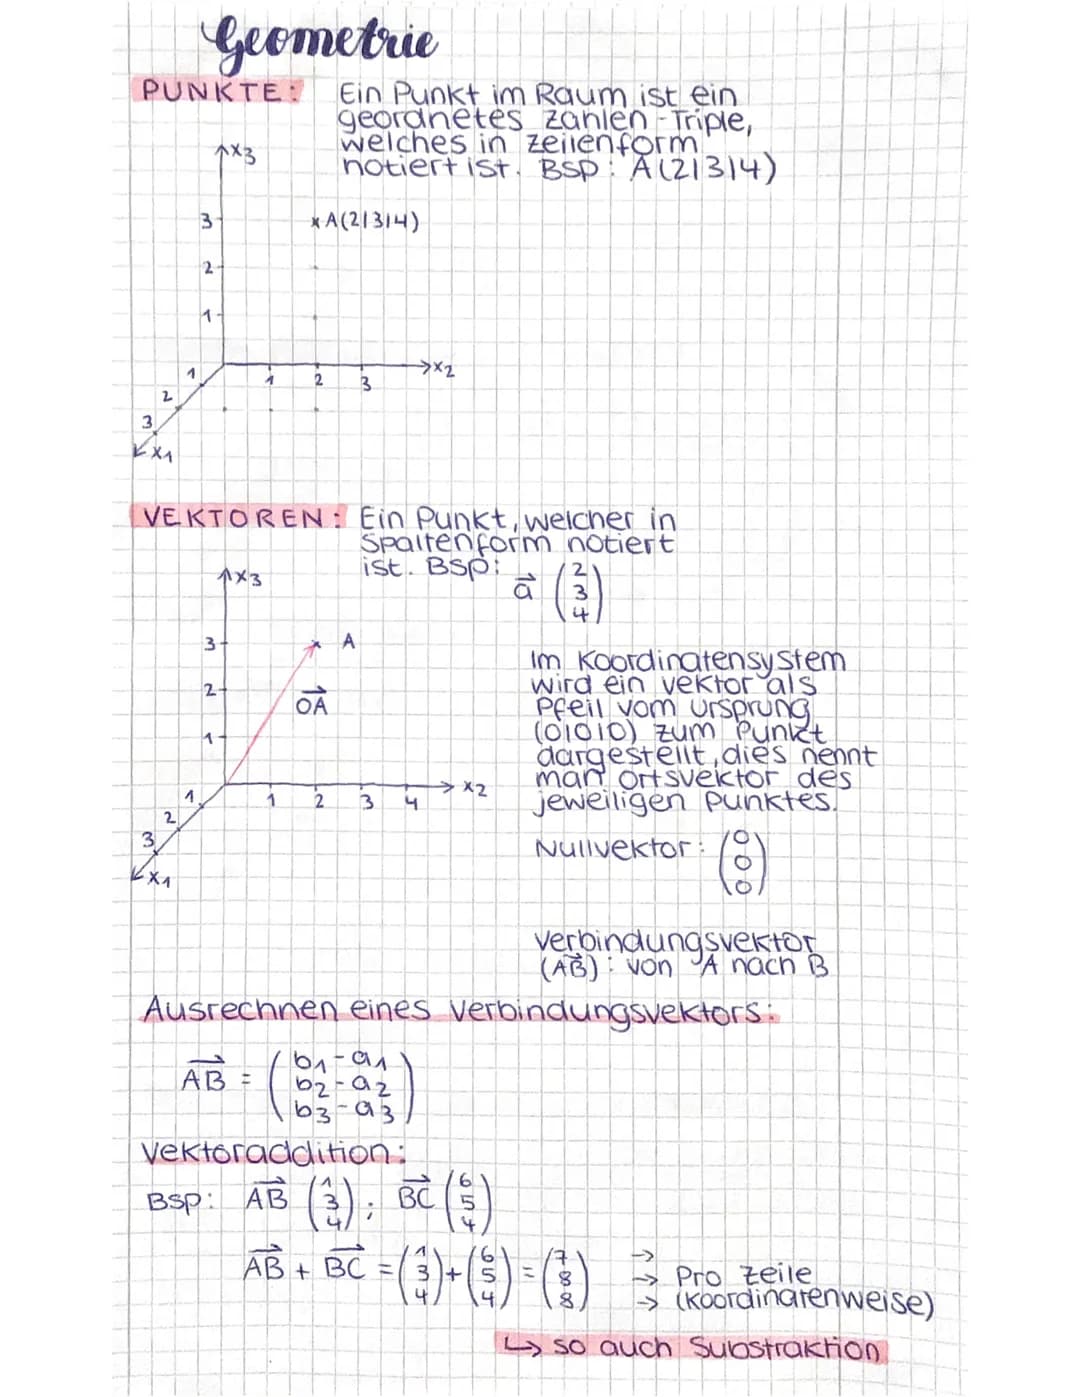 Geometrie
PUNKTE: Ein Punkt im Raum ist ein
geordnetes Zahlen-Triple,
welches in Zeilenform
notiert ist. BSP: A(2|3|4)
x3
3
x A(2|3|4)
2
1
x2
1 2 3
1
2
3
x1
VEKTOREN: Ein Punkt, welcher in
Spaltenform notiert
ist. BSP: a⃗ (2 3 4)
x3
3 A
2
OA⃗
1
x2
1 2 3 4
1
2
3
x1
Im Koordinatensystem
wird ein Vektor als
Pfeil vom Ursprung
(0|0|0) zum Punkt
dargestellt, dies nennt
man Ortsvektor des
jeweiligen Punktes.
Nullvektor: (0 0 0)
Verbindungsvektor
(AB⃗): von A nach B
Ausrechnen eines Verbindungsvektors:
AB⃗ = (b1-a1 b2-a2 b3-a3)
Vektoraddition:
BSP: AB⃗ (1 3 4); BC⃗ (6 5 4)
AB⃗ + BC⃗ = (1 3 4) + (6 5 4) = (7 8 8)
→
→ Pro Zeile
→ (Koordinatenweise)
↳ so auch Substraktion